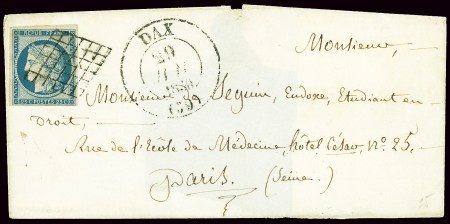 REPUB. FRANC.
25 c POSTES 25 c
DAX
20
1850
(39)
Monsieur,
à Monsieur Seguin, Eudoxe, Etudiant en
Droit,
Rue de l'Ecole de Médecine, hôtel César, n°. 25.
Paris. (Seine.)